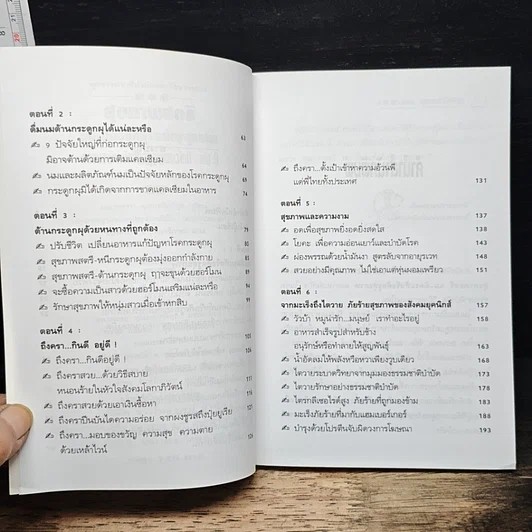 ตอนที่ 2 :
ดื่มนมต้านกระดูกผุได้แน่ละหรือ 63
9 ปัจจัยใหญ่ที่ก่อกระดูกผุ
มิอาจต้านด้วยการเติมแคลเซียม 64
นมและผลิตภัณฑ์นมเป็นปัจจัยหลักของโรคกระดูกผุ 69
กระดูกผุมิได้เกิดจากการขาดแคลเซียมในอาหาร 74
ตอนที่ 3 :
ต้านกระดูกผุด้วยหนทางที่ถูกต้อง 79
ปรับชีวิต เปลี่ยนอาหารแก้ปัญหาโรคกระดูกผุ
สุขภาพสตรี-หนีกระดูกผุต้องมุ่งออกกำลังกาย
สุขภาพสตรี-ต้านกระดูกผุ ฤาจะขุนด้วยฮอร์โมน
จะซื้อความเป็นสาวด้วยฮอร์โมนเสริมแน่ละหรือ
รักษาสุขภาพให้หนุ่มสาวเมื่อเข้าหกสิบ
ตอนที่ 4 :
ถึงครา...กินดี อยู่ดี !
ถึงครา...กินดีอยู่ดี !
ถึงคราสวย...ด้วยวิธีสบาย
หนอนร้ายในหัวใจสังคมโลกาภิวัตน์
ถึงคราสวยด้วยเอาเงินซื้อหา
ถึงคราปีนบันไดความอร่อย จากผงชูรสถึงปุ๋ยยูเรีย
ถึงครา...มอบของขวัญ ความสุข ความตาย
ด้วยเหล้าไวน์
ถึงครา...ตั้งเป้าเข้าหาความอ้วนพี
แด่พี่ไทยทั้งประเทศ 131
ตอนที่ 5 :
สุขภาพและความงาม 137
อดเพื่อสุขภาพยิ่งอดยิ่งสดใส 138
โยคะ เพื่อความอ่อนเยาว์และบำบัดโรค 143
ผ่องพรรณด้วยน้ำมันงา สูตรลับจากอายุรเวท 148
สวยอย่างมีคุณภาพ ไม่ใช่เอาแต่หุ่นผอมเพรียว 151
ตอนที่ 6 :
จากมะเร็งถึงไตวาย ภัยร้ายสุขภาพของสังคมยุคนิกส์ 157
วัวบ้า หมูน่ารัก...มนุษย์ เราทำอะไรอยู่ 158
อาหารสำเร็จรูปสำหรับช้าง
อนุรักษ์หรือทำลายให้สูญพันธุ์ 163
น้ำอัดลมให้พลังหรือหวาเพียงวูบเดียว 168
ไตวายระบาดวิทยาจากมุมมองธรรมชาติบำบัด 173
ไตวายรักษาอย่างธรรมชาติบำบัด 178
ไตรกลีเซอไรด์สูง ภัยร้ายที่ถูกมองข้าม 183
มะเร็งภัยร้ายที่มากับแฮมเบอร์เกอร์ 188
บำรุงด้วยโปรตีนจับผิดวงการโฆษณา 193